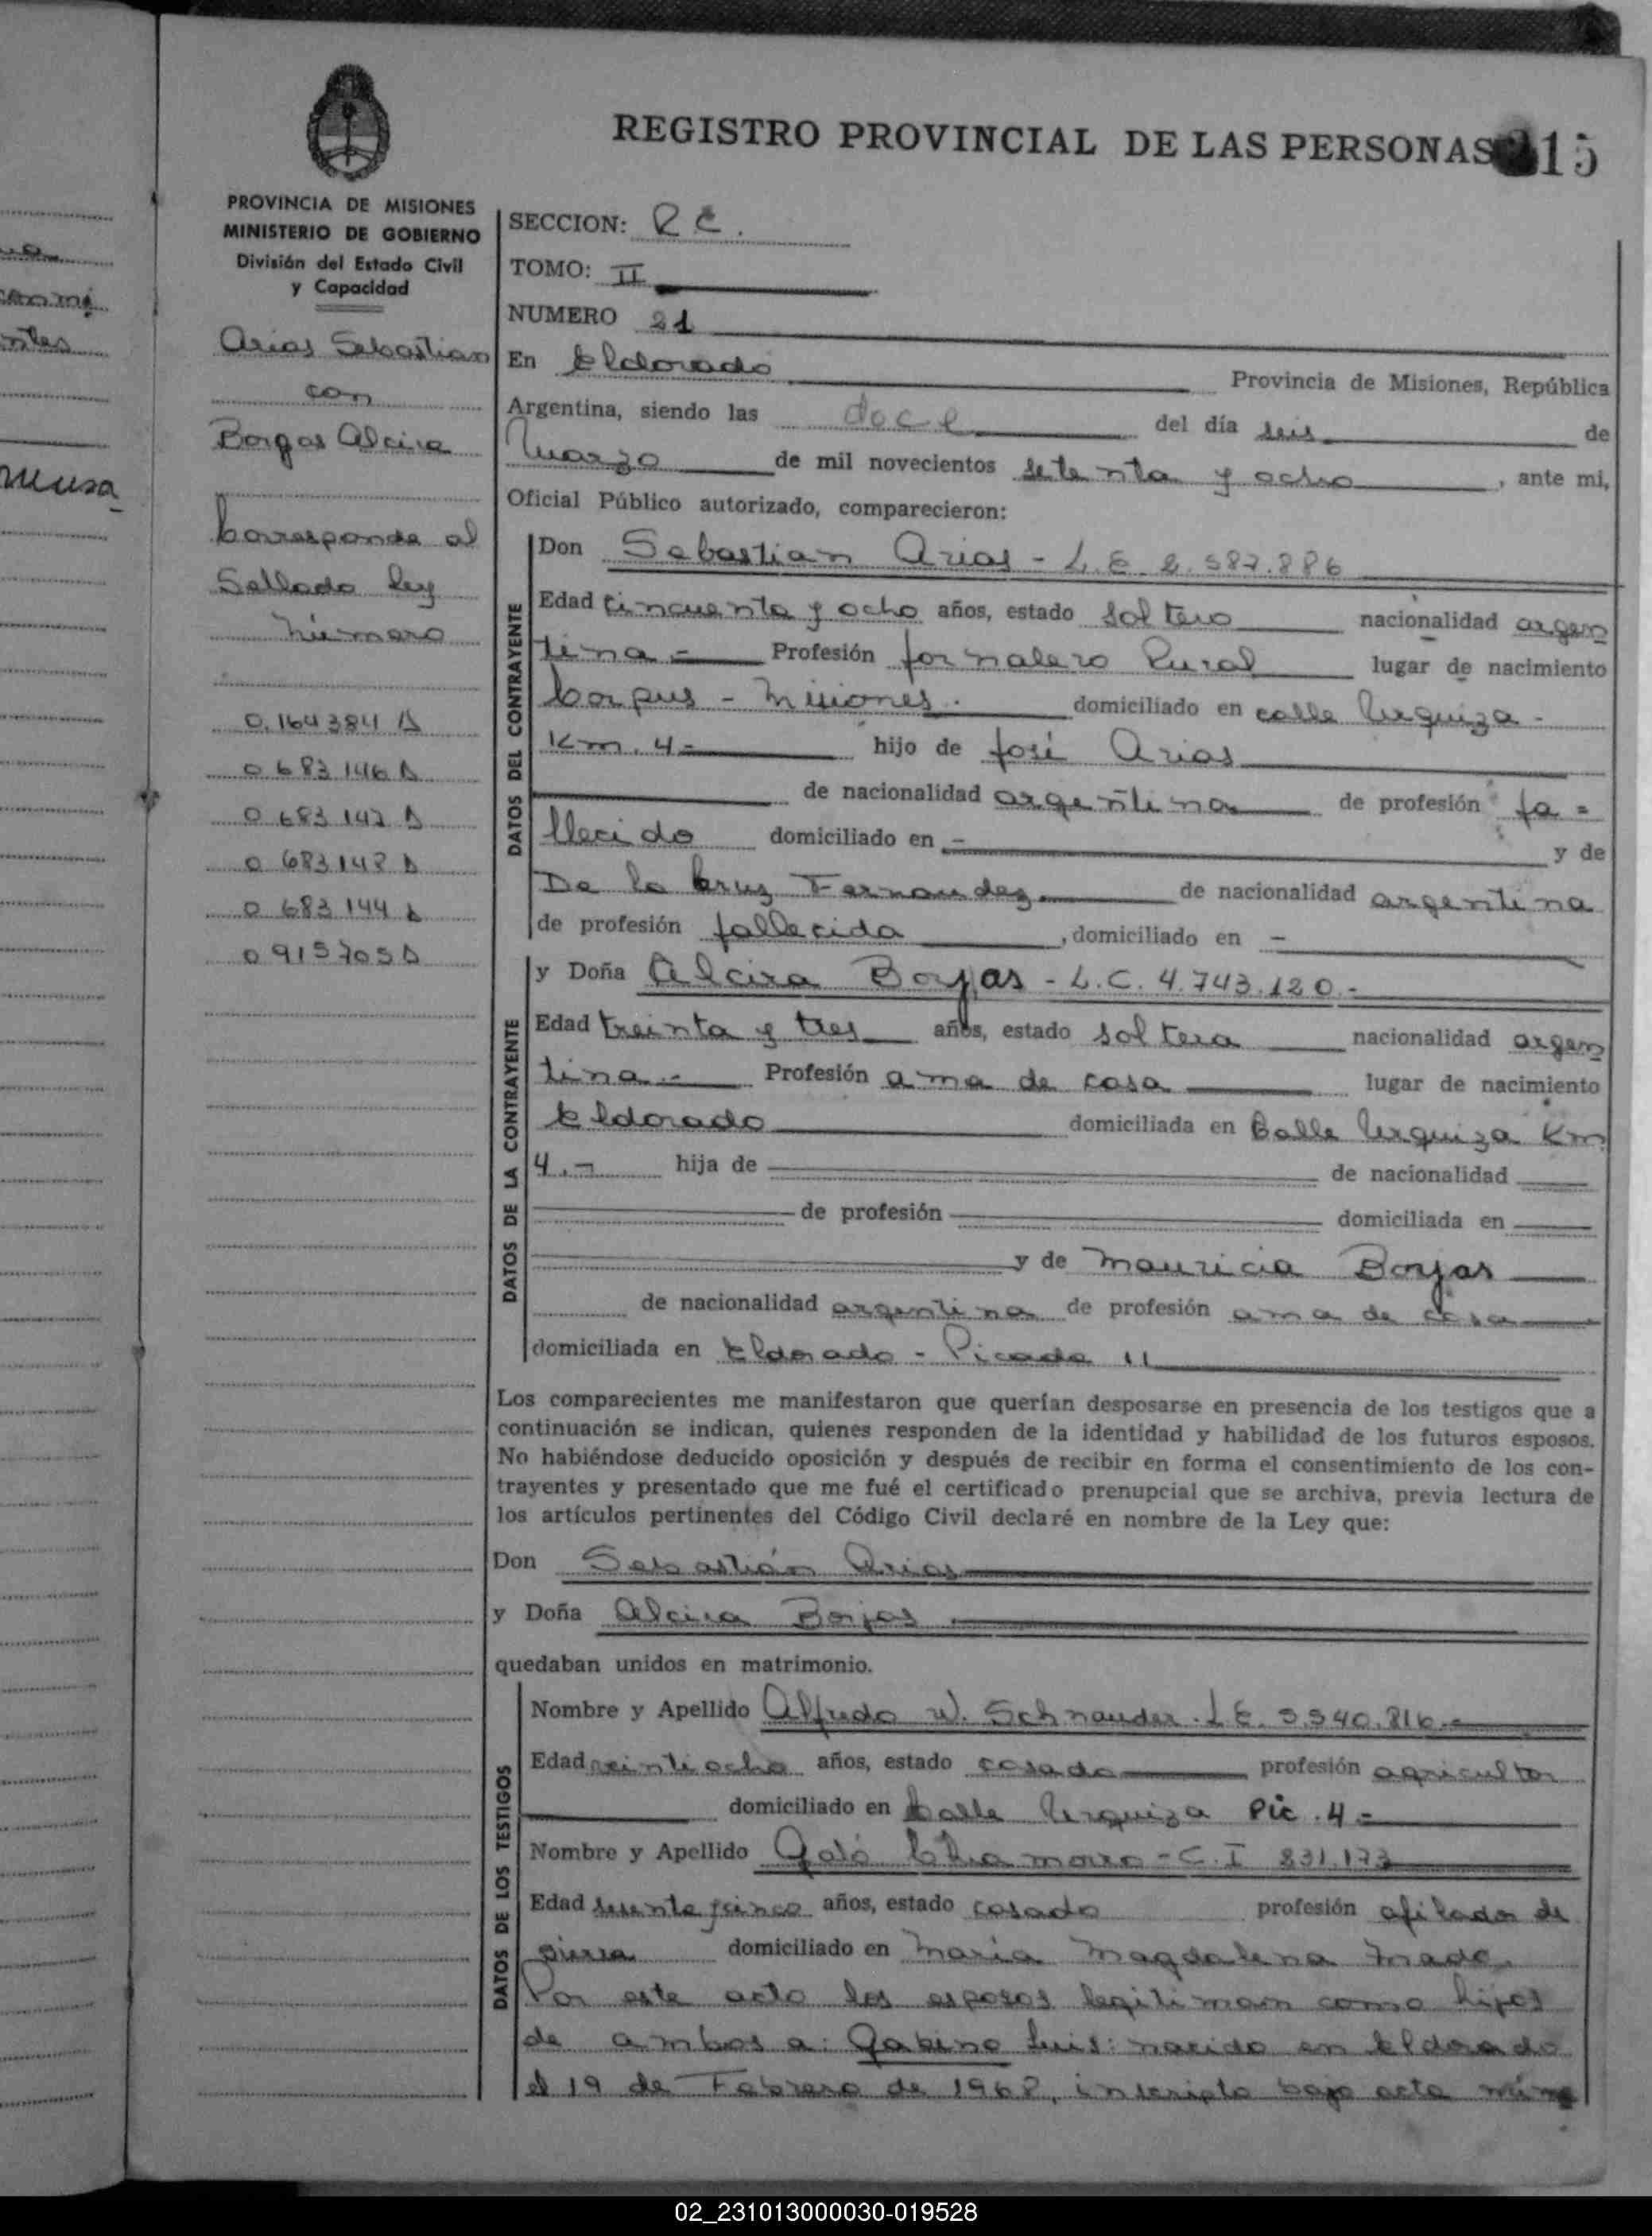 REGISTRO PROVINCIAL DE LAS PERSONAS 215
PROVINCIA DE MISIONES
MINISTERIO DE GOBIERNO
División del Estado Civil
y Capacidad
Arias Sebastian
con
Borjas Alcira
Corresponde al
Sellado ley
número
0.164384 A
0 683 146 A
0 683 147 A
0 683 148 A
0 683 144 A
0 915705 A
SECCION: R C.
TOMO: II
NUMERO 21
En Eldorado Provincia de Misiones, República
Argentina, siendo las doce del día seis de
Marzo de mil novecientos setenta y ocho, ante mi,
Oficial Público autorizado, comparecieron:
DATOS DEL CONTRAYENTE
Don Sebastian Arias - L.E. 2.587.886
Edad cincuenta y ocho años, estado soltero nacionalidad argen
tina.- Profesión jornalero Rural lugar de nacimiento
Corpus - Misiones. domiciliado en calle Urquiza -
Km. 4- hijo de José Arias
de nacionalidad argentina de profesión fa-
llecido domiciliado en - y de
De la Cruz Fernandez de nacionalidad argentina
de profesión fallecida, domiciliado en -
DATOS DE LA CONTRAYENTE
y Doña Alcira Borjas - L.C. 4.743.120.-
Edad treinta y tres años, estado soltera nacionalidad argen
tina.- Profesión ama de casa lugar de nacimiento
Eldorado domiciliada en Calle Urquiza Km
4.- hija de de nacionalidad
de profesión domiciliada en
y de Mauricia Borjas
de nacionalidad argentina de profesión ama de casa
domiciliada en Eldorado - Picada 11
Los comparecientes me manifestaron que querían desposarse en presencia de los testigos que a
continuación se indican, quienes responden de la identidad y habilidad de los futuros esposos.
No habiéndose deducido oposición y después de recibir en forma el consentimiento de los con-
trayentes y presentado que me fué el certificado prenupcial que se archiva, previa lectura de
los artículos pertinentes del Código Civil declaré en nombre de la Ley que:
Don Sebastián Arias
y Doña Alcira Borjas
quedaban unidos en matrimonio.
DATOS DE LOS TESTIGOS
Nombre y Apellido Alfredo W. Schnauder. L.E. 5.540.816.-
Edad veintiocho años, estado casado profesión agricultor
domiciliado en Calle Urquiza Pic. 4-
Nombre y Apellido - C.I 831.173
Edad años, estado casado profesión afilador de
sierra domiciliado en María Magdalena
Por este acto los esposos legitiman como hijos
de ambos a: Gabino Luis: nacido en Eldorado
el 19 de Febrero de 1968, inscripto bajo acta núme
02_231013000030-019528